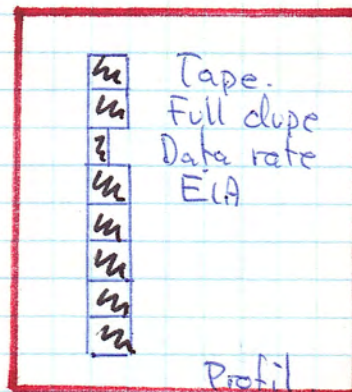 Tape.
Full dupe
Data rate
EIA
Profil